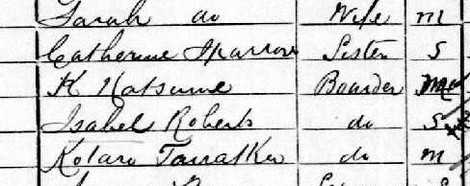 Sarah do Wife m
Catherine Sparrow Sister S
K Natsume Boarder m
Isabel Roberts do S
Kotaro do m